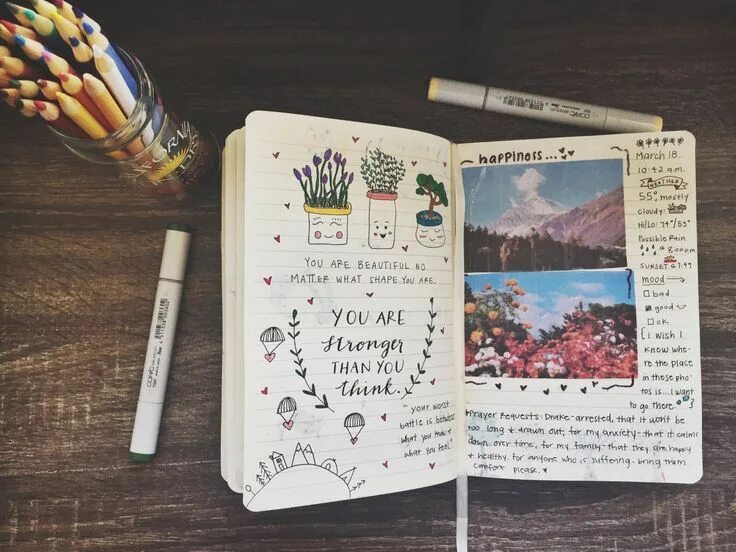 YOU ARE BEAUTIFUL NO
MATTER WHAT SHAPE YOU ARE.
YOU ARE
stronger
THAN YOU
think.
"your worst
battle is between
what you know &
what you feel"
happiness...
March 18
10:42 a.m.
WEATHER
55° mostly
cloudy
Hi/Lo: 74°/55°
Possible Rain
8:00pm
SUNSET @ 7:47
mood
bad
good
ok
I wish I
know whe-
re the place
in these pho-
tos is... I want
to go there.
Prayer Requests: Drake-arrested, that it won't be
too long & drawn out, for my anxiety-that it calms
down over time, for my family-that they are happy
& healthy. for anyone who is suffering-bring them
comfort please.
COPIC sketch
COPIC sketch